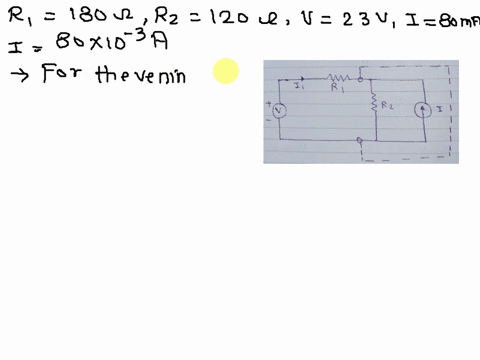 R₁ = 180 Ω, R₂ = 120 Ω, V = 23 V, I = 80 mA
I = 80×10⁻³ A
→ For thevenin
I₁
R₁
+
V
-
R₂
I